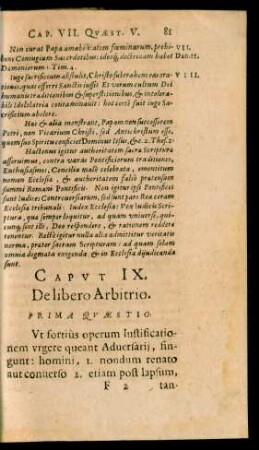 CAP. VII. QUÆST. V. 81
Non curat Papa amabilitatem fœminarum, prohi- VII.
bens Coniugium Sacerdotibus: ideoq́; doctrinam habet Dan. 11.
Dæmoniorum 1. Tim. 4.
Iuge sacrificium abstulit, Christo subtrahens ea tra- VIII.
ditionibus, quæ offerri Sancti iussit: Et verum cultum Dei
humanis traditionibus & superstitionibus, & intolerabi-
libus Idololatria contaminauit: hoc certè fuit iuge Sa-
crificium abolere.
Hæc & alia monstrant, Papam non successorem
Petri, non Vicarium Christi, sed Antichristum esse,
quem suo Spiritu conficiet Dominus Iesus, &c. 2. Thes. 2.
Hactenus igitur authoritatem sacræ Scripturæ
asseruimus, contra varias Pontificiorum traditiones,
Enthusiasmos, Concilia malè celebrata, ementitum
nomen Ecclesiæ, & authoritatem falsò prætensam
summi Romani Pontificis. Non igitur ipsi Pontificii
sunt Iudices Controuersiarum, sed sunt pars Rea coram
Ecclesiæ tribunali: Iudex Ecclesiæ: Vox Iudicis Scri-
ptura, qua semper loquitur, ad quam vniuersi, qui-
cunq́;, sunt illi, Deo respondere, & rationem reddere
tenentur. Rectè igitur nulla alia admittitur veritatis
norma, præter sacram Scripturam: ad quam solam
omnia dogmata exigenda, & in Ecclesia dijudicanda
sunt.
CAPVT IX.
De libero Arbitrio.
PRIMA QVÆSTIO.
Vt fortiùs operum Iustificatio-
nem vrgere queant Aduersarij, fin-
gunt: homini, 1. nondum renato
aut conuerso 2. etiam post lapsum,
F 2 tan-